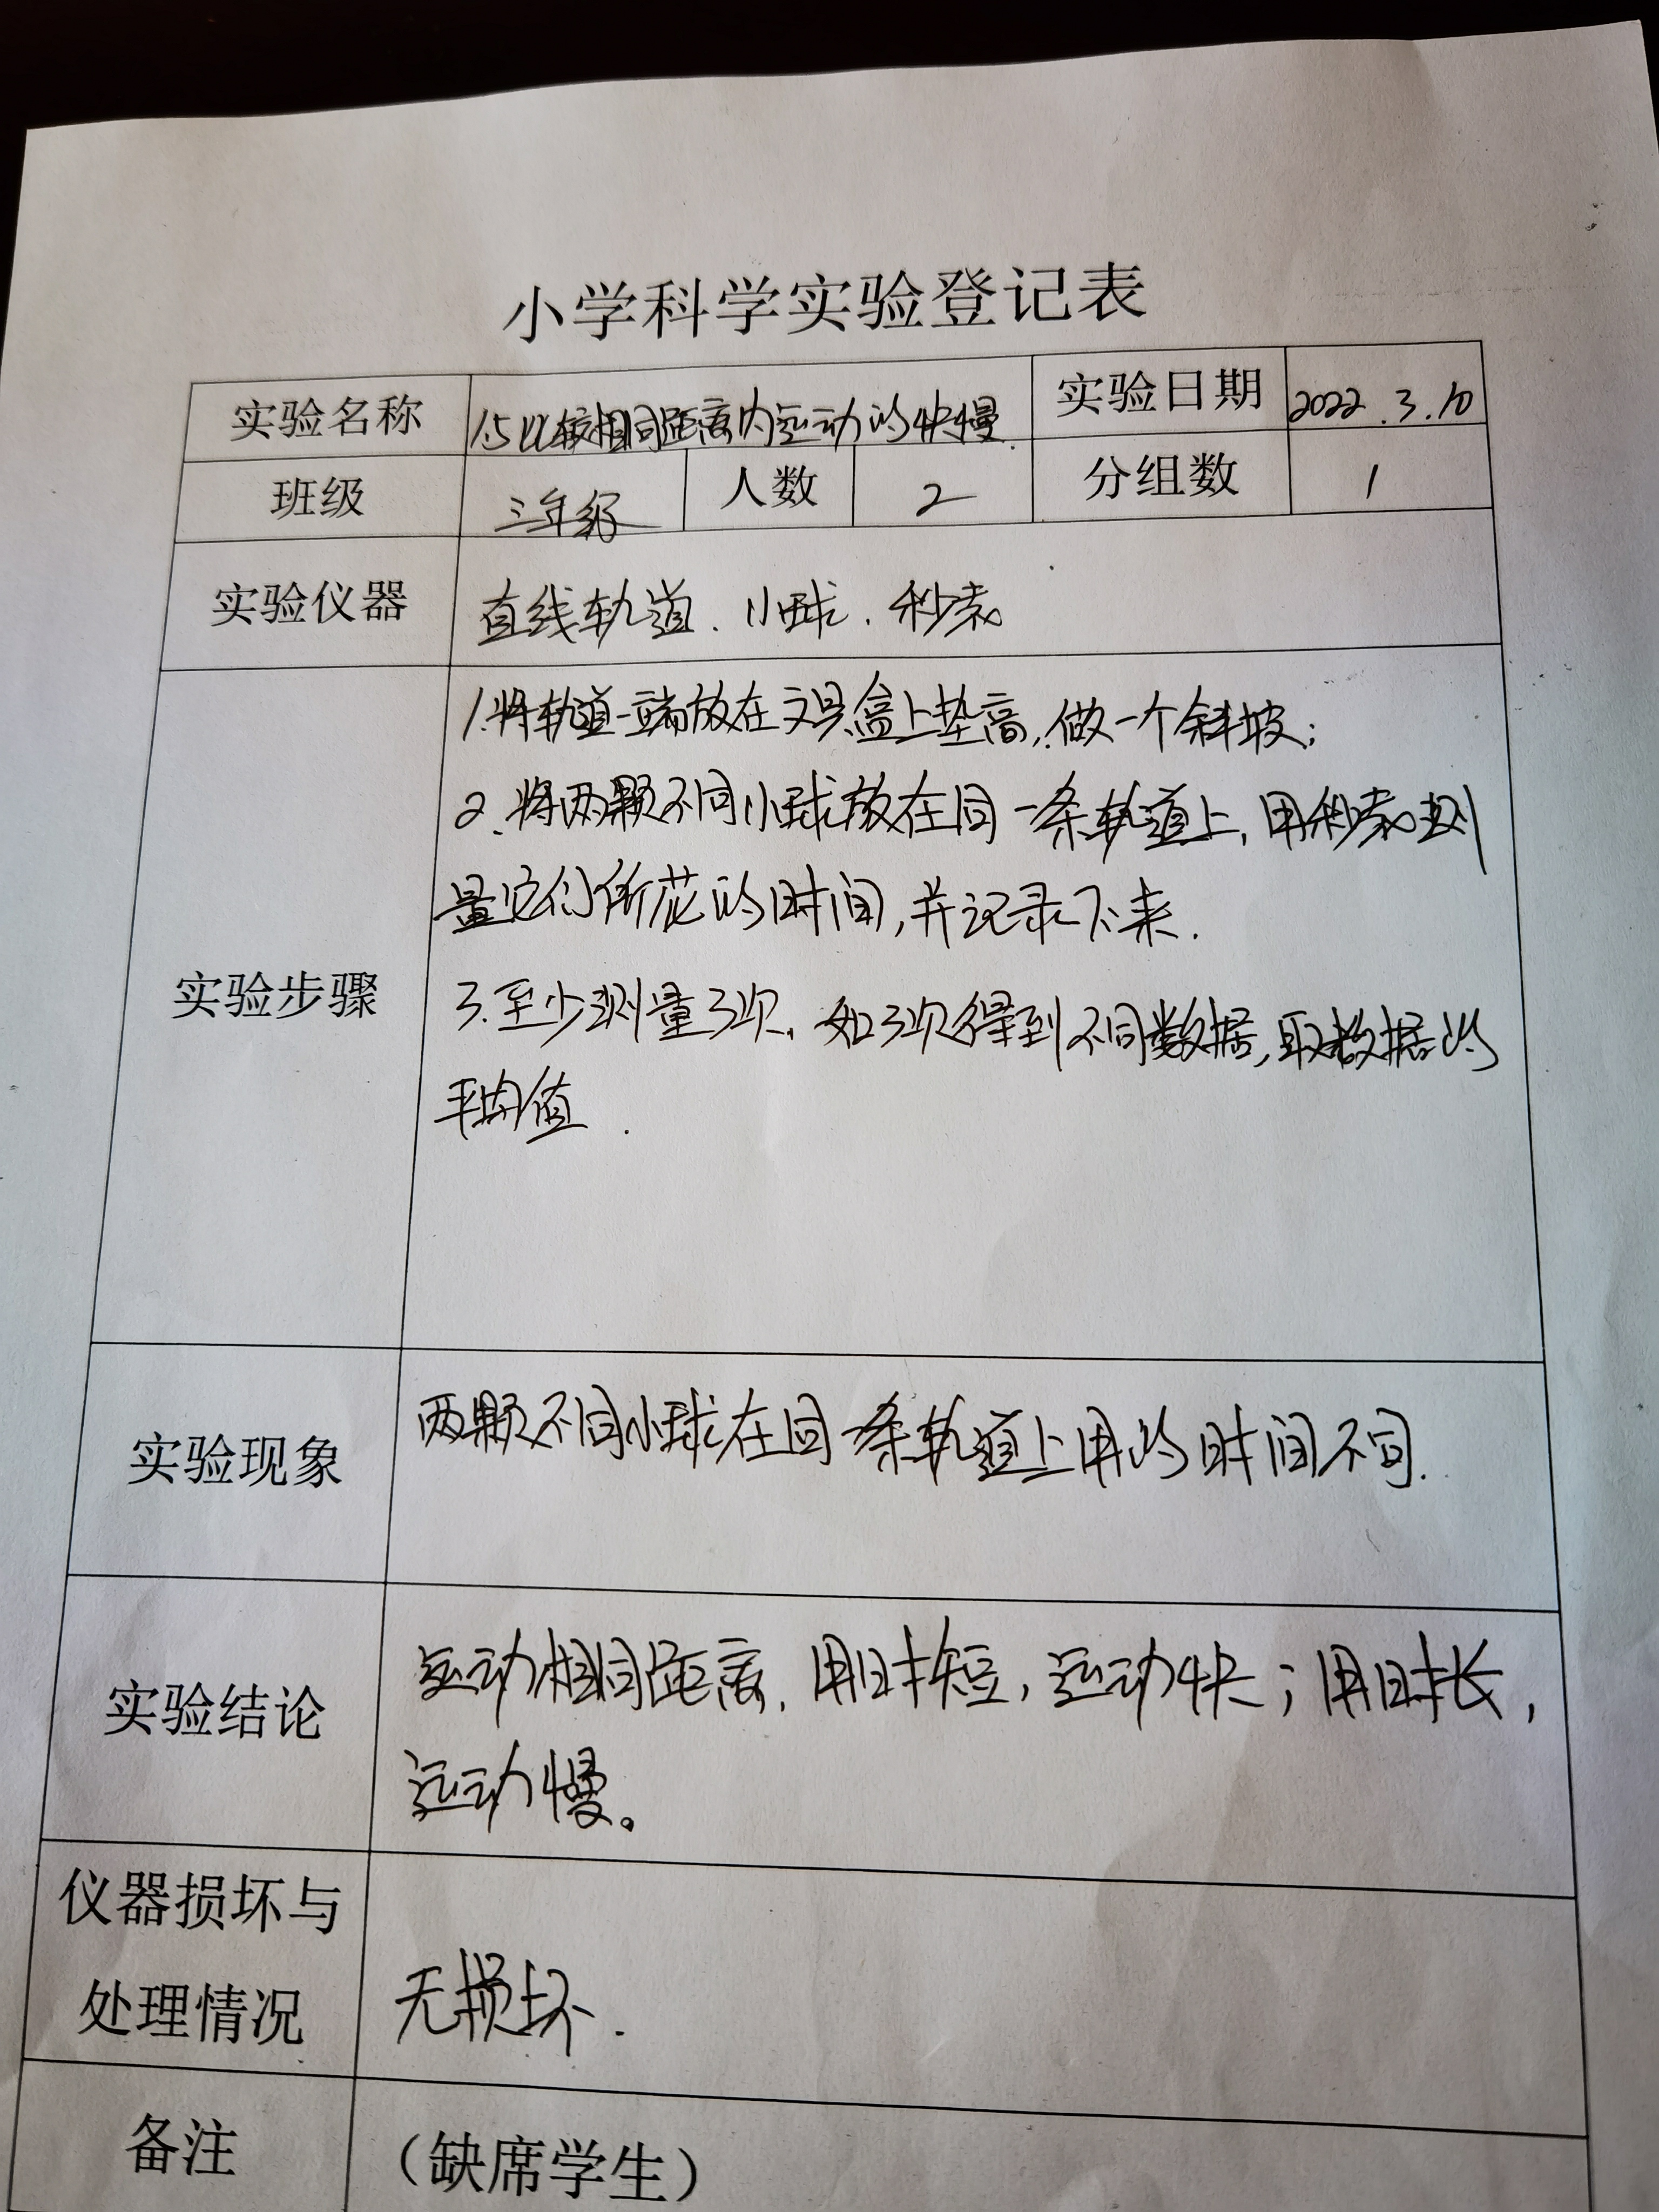 小学科学实验登记表
实验名称 1.5比较相同距离内运动的快慢. 实验日期 2022.3.10
班级 三年级 人数 2 分组数 1
实验仪器 直线轨道.小球.秒表
1.将轨道一端放在文具盒上垫高,做一个斜坡;
2.将两颗不同小球放在同一条轨道上,用秒表测
量它们所花的时间,并记录下来.
实验步骤
3.至少测量3次.如3次得到不同数据,取数据的
平均值.
实验现象 两颗不同小球在同一条轨道上用的时间不同.
实验结论 运动相同距离.用时短,运动快;用时长,
运动慢。
仪器损坏与
处理情况 无损坏.
备注 (缺席学生)